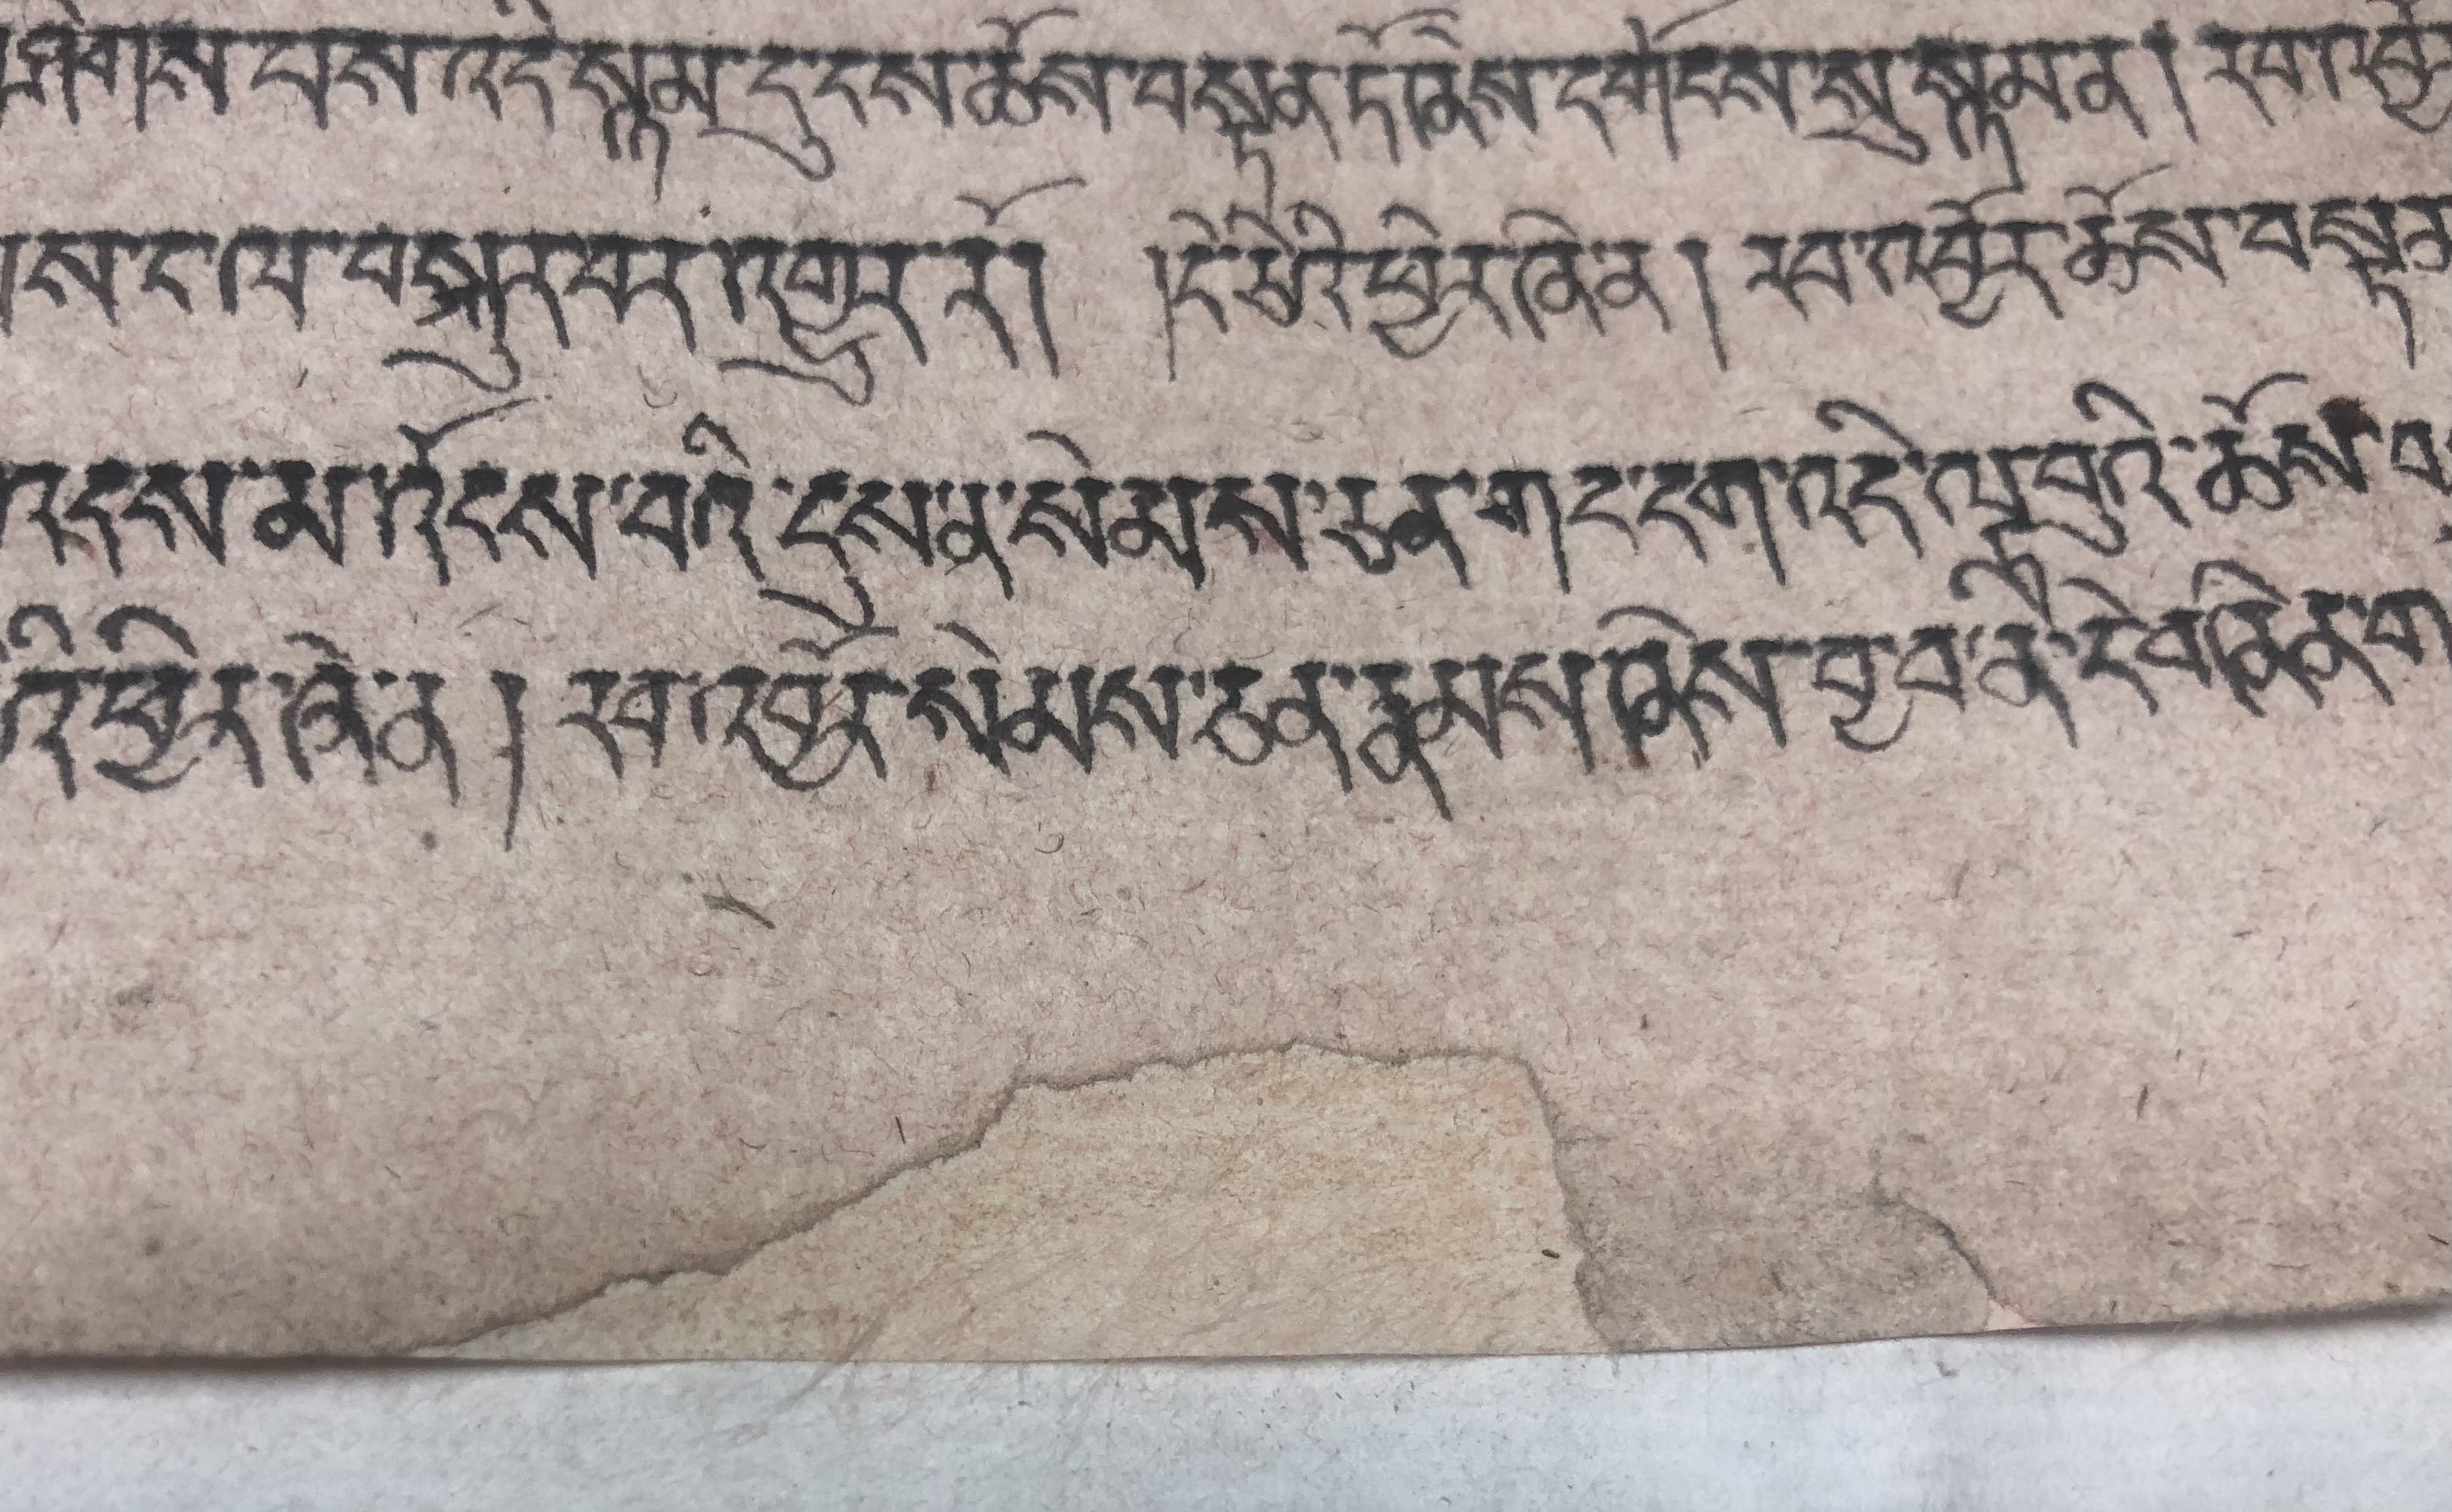 གཤེགས་པས་འདི་སྙམ་དུ་ངས་ཆོས་བསྟན་ཏོ་ཞེས་དགོངས་སུ་སྙམ་ན། རབ་འབྱོ
ས་ང་ལ་བསྐུར་བར་འགྱུར་རོ། །དེ་ཅིའི་ཕྱིར་ཞེ་ན། རབ་འབྱོར་ཆོས་བསྟན
འདས་མ་འོངས་པའི་དུས་ན་སེམས་ཅན་གང་དག་འདི་ལྟ་བུའི་ཆོས་བ
འི་ཕྱིར་ཞེ་ན། རབ་འབྱོར་སེམས་ཅན་རྣམས་ཞེས་བྱ་བ་ནི་དེ་བཞིན་ག